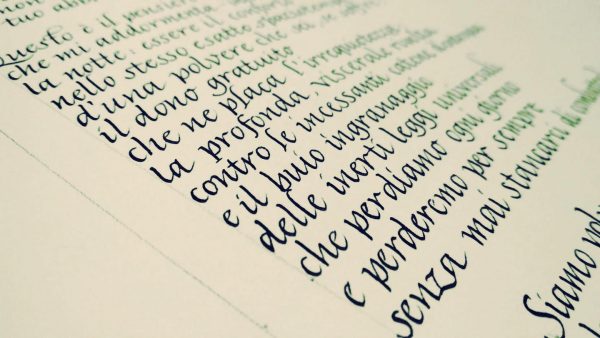 tuo
Questo è il pensiero
che mi addormenta
la notte: essere il conforto
nello stesso esatto
d'una polvere che
il dono gratuito
che ne placa l'irrequietezza
la profonda, viscerale rivolta
contro le incessanti catene
e il buio ingranaggio
delle inerti leggi universali
che perdiamo ogni giorno
e perderemo per sempre
senza mai stancarci di
Siamo